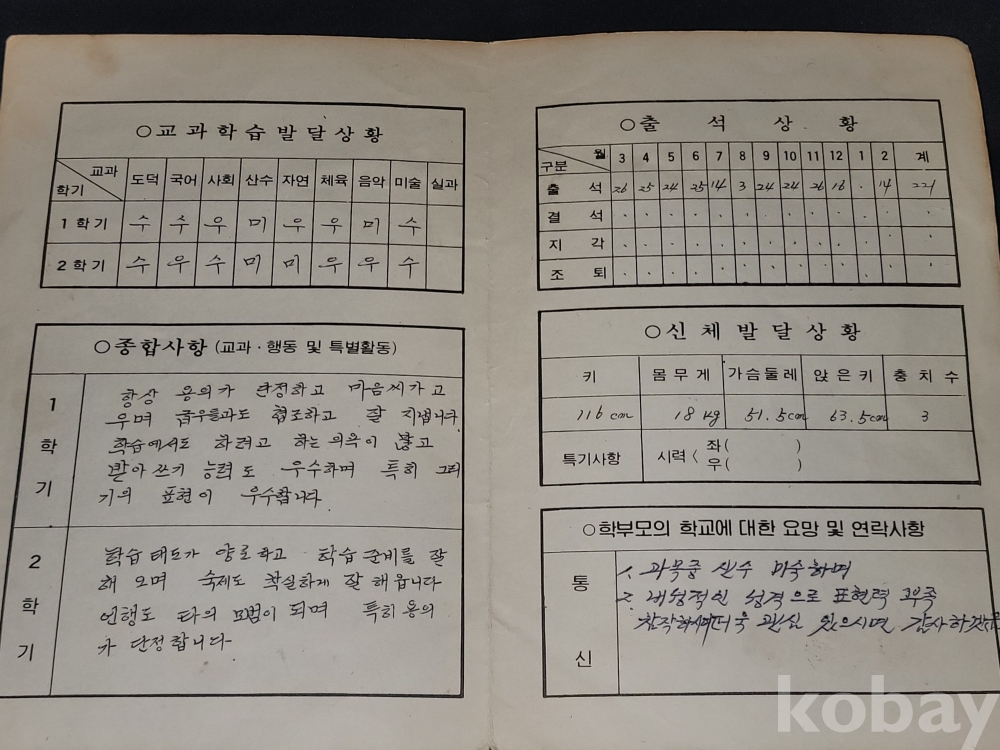 ○교과학습발달상황
교과 도덕 국어 사회 산수 자연 체육 음악 미술 실과
학기
1학기 수 수 우 미 우 우 미 수
2학기 수 우 수 미 미 우 우 수
○종합사항 (교과·행동 및 특별활동)
1학기
항상 용의가 단정하고 마음씨가 고
우며 급우들과도 협조하고 잘 지냅니다
학습에서도 하려고 하는 의욕이 많고
받아쓰기 능력도 우수하며 특히 그리
기의 표현이 우수합니다
2학기
학습태도가 양호하고 학습 준비를 잘
해 오며 숙제도 착실하게 잘 해옵니다
언행도 타의 모범이 되며 특히 용의
가 단정합니다
○출석상황
월 3 4 5 6 7 8 9 10 11 12 1 2 계
구분
출석 26 25 24 25 14 3 24 24 26 16 . 14 221
결석 . . . . . . . . . . . . .
지각 . . . . . . . . . . . . .
조퇴 . . . . . . . . . . . . .
○신체발달상황
키 몸무게 가슴둘레 앉은키 충치수
116cm 18kg 51.5cm 63.5cm 3
특기사항 시력 좌( )
우( )
○학부모의 학교에 대한 요망 및 연락사항
통신
1. 과목중 산수 미숙하며
2. 내성적인 성격으로 표현력 부족
참작하시어 더욱 관심 있으시면 감사하겠
kobay